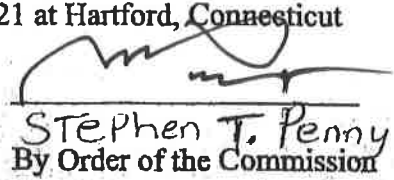 21 at Hartford, Connecticut
STephen T. Penny
By Order of the Commission